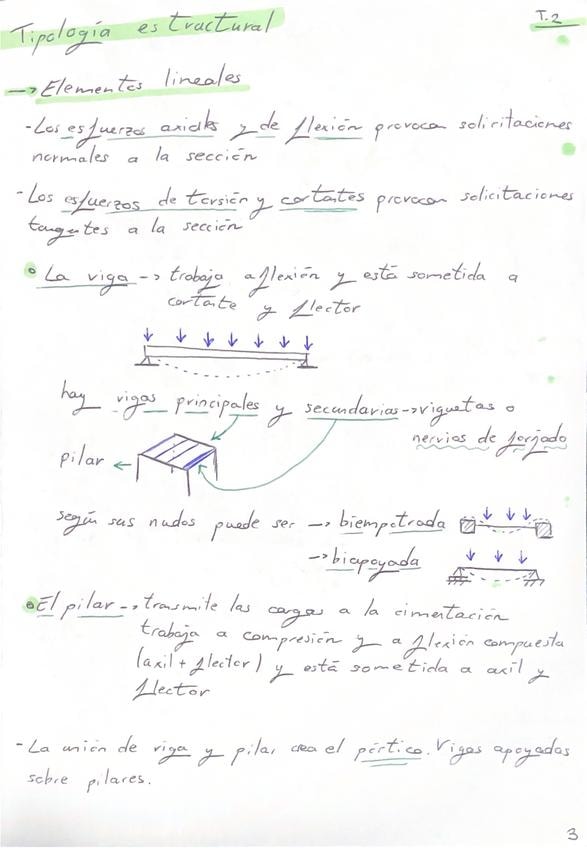 Tipología estructural
T.2
→ Elementos lineales
- Los esfuerzos axiales y de flexión provocan solicitaciones
normales a la sección
- Los esfuerzos de torsión y cortantes provocan solicitaciones
tangentes a la sección
• La viga → trabaja a flexión y está sometida a
cortante y flector
hay vigas principales y secundarias → viguetas o
nervios de forjado
pilar ←
según sus nudos puede ser → biempotrada
→ biapoyada
• El pilar → transmite las cargas a la cimentación
trabaja a compresión y a flexión compuesta
(axil + flector) y está sometida a axil y
flector
- La unión de viga y pilar crea el pórtico. Vigas apoyadas
sobre pilares.
3